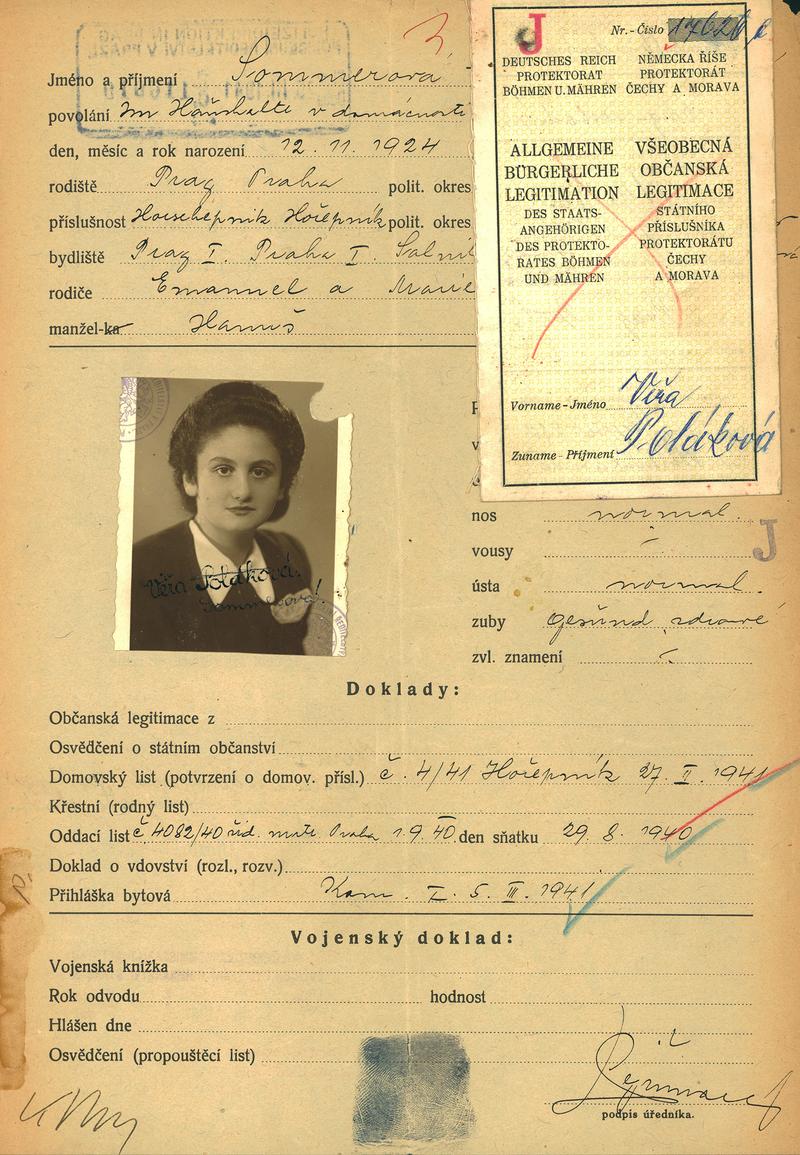 Jméno a příjmení Sommerová
povolání Im Haushalte v domácnosti
den, měsíc a rok narození 12. 11. 1924
rodiště Prag Praha polit. okres
příslušnost Horschepnik Hořepník polit. okres
bydliště Prag I. Praha I.
rodiče Emanuel a Marie
manžel-ka Hanuš
J
Nr. - Číslo
DEUTSCHES REICH
PROTEKTORAT
BÖHMEN U. MÄHREN
NĚMECKÁ ŘÍŠE
PROTEKTORÁT
ČECHY A MORAVA
ALLGEMEINE
BÜRGERLICHE
LEGITIMATION
DES STAATS-
ANGEHÖRIGEN
DES PROTEKTO-
RATES BÖHMEN
UND MÄHREN
VŠEOBECNÁ
OBČANSKÁ
LEGITIMACE
STÁTNÍHO
PŘÍSLUŠNÍKA
PROTEKTORÁTU
ČECHY
A MORAVA
Vorname - Jméno Věra
Zuname - Příjmení Poláková
Věra Poláková.
Sommerová!
nos normal.
J
vousy -
ústa normal.
zuby gesund, zdravé
zvl. znamení -
Doklady:
Občanská legitimace z
Osvědčení o státním občanství
Domovský list (potvrzení o domov. přísl.) č. 4/41 Hořepník 27. II. 1941
Křestní (rodný list)
Oddací list č. 4082/40 Praha 1.9.40. den sňatku 29. 8. 1940
Doklad o vdovství (rozl., rozv.)
Přihláška bytová Kom. I. 5. III. 1941
Vojenský doklad:
Vojenská knížka
Rok odvodu hodnost
Hlášen dne
Osvědčení (propouštěcí list)
podpis úředníka.